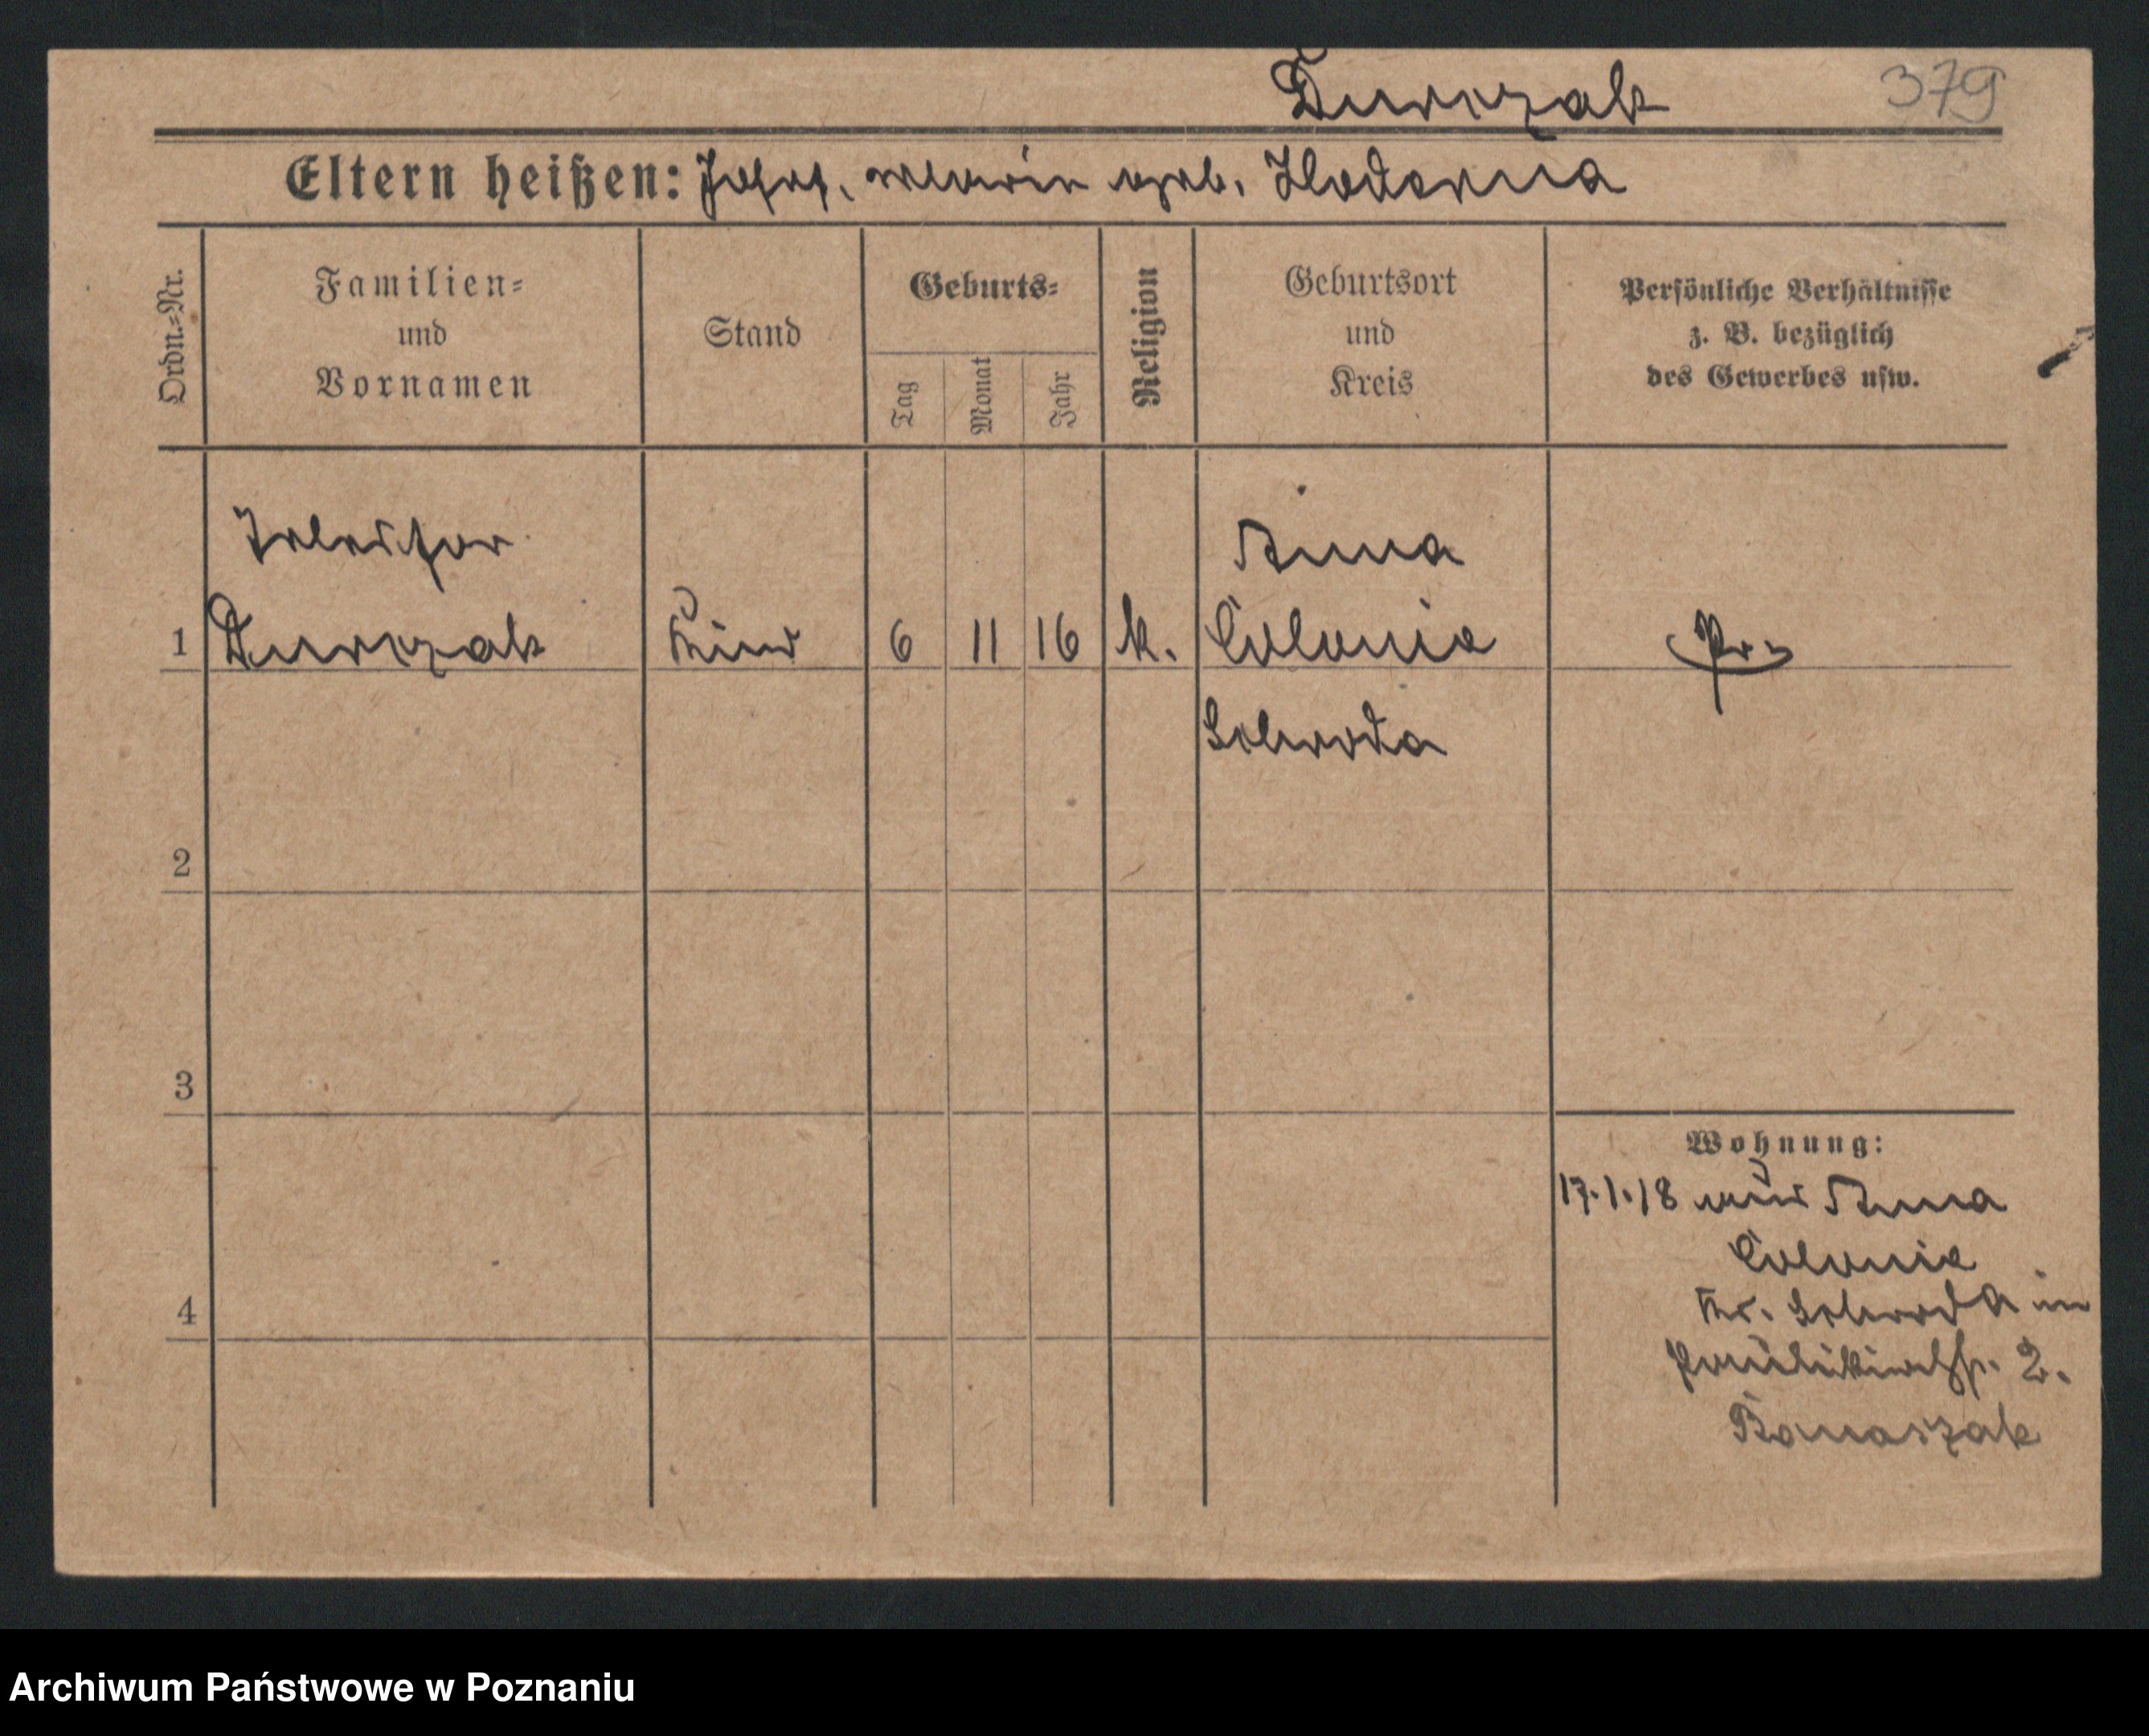 Durczak 379
Eltern heißen: Josef, Marie geb. Hoderna
Ordn.-Nr.
Familien-
und
Vornamen
Stand
Geburts-
Tag
Monat
Jahr
Religion
Geburtsort
und
Kreis
Persönliche Verhältnisse
z. B. bezüglich
des Gewerbes usw.
Anna
1 Durczak Kind 6 11 16 k. Colonie Pr.
Schroda
2
3
4
Wohnung:
17.1.18 aus Anna
Colonie
Kr. Schroda in
2.
Banaszak
Archiwum Państwowe w Poznaniu